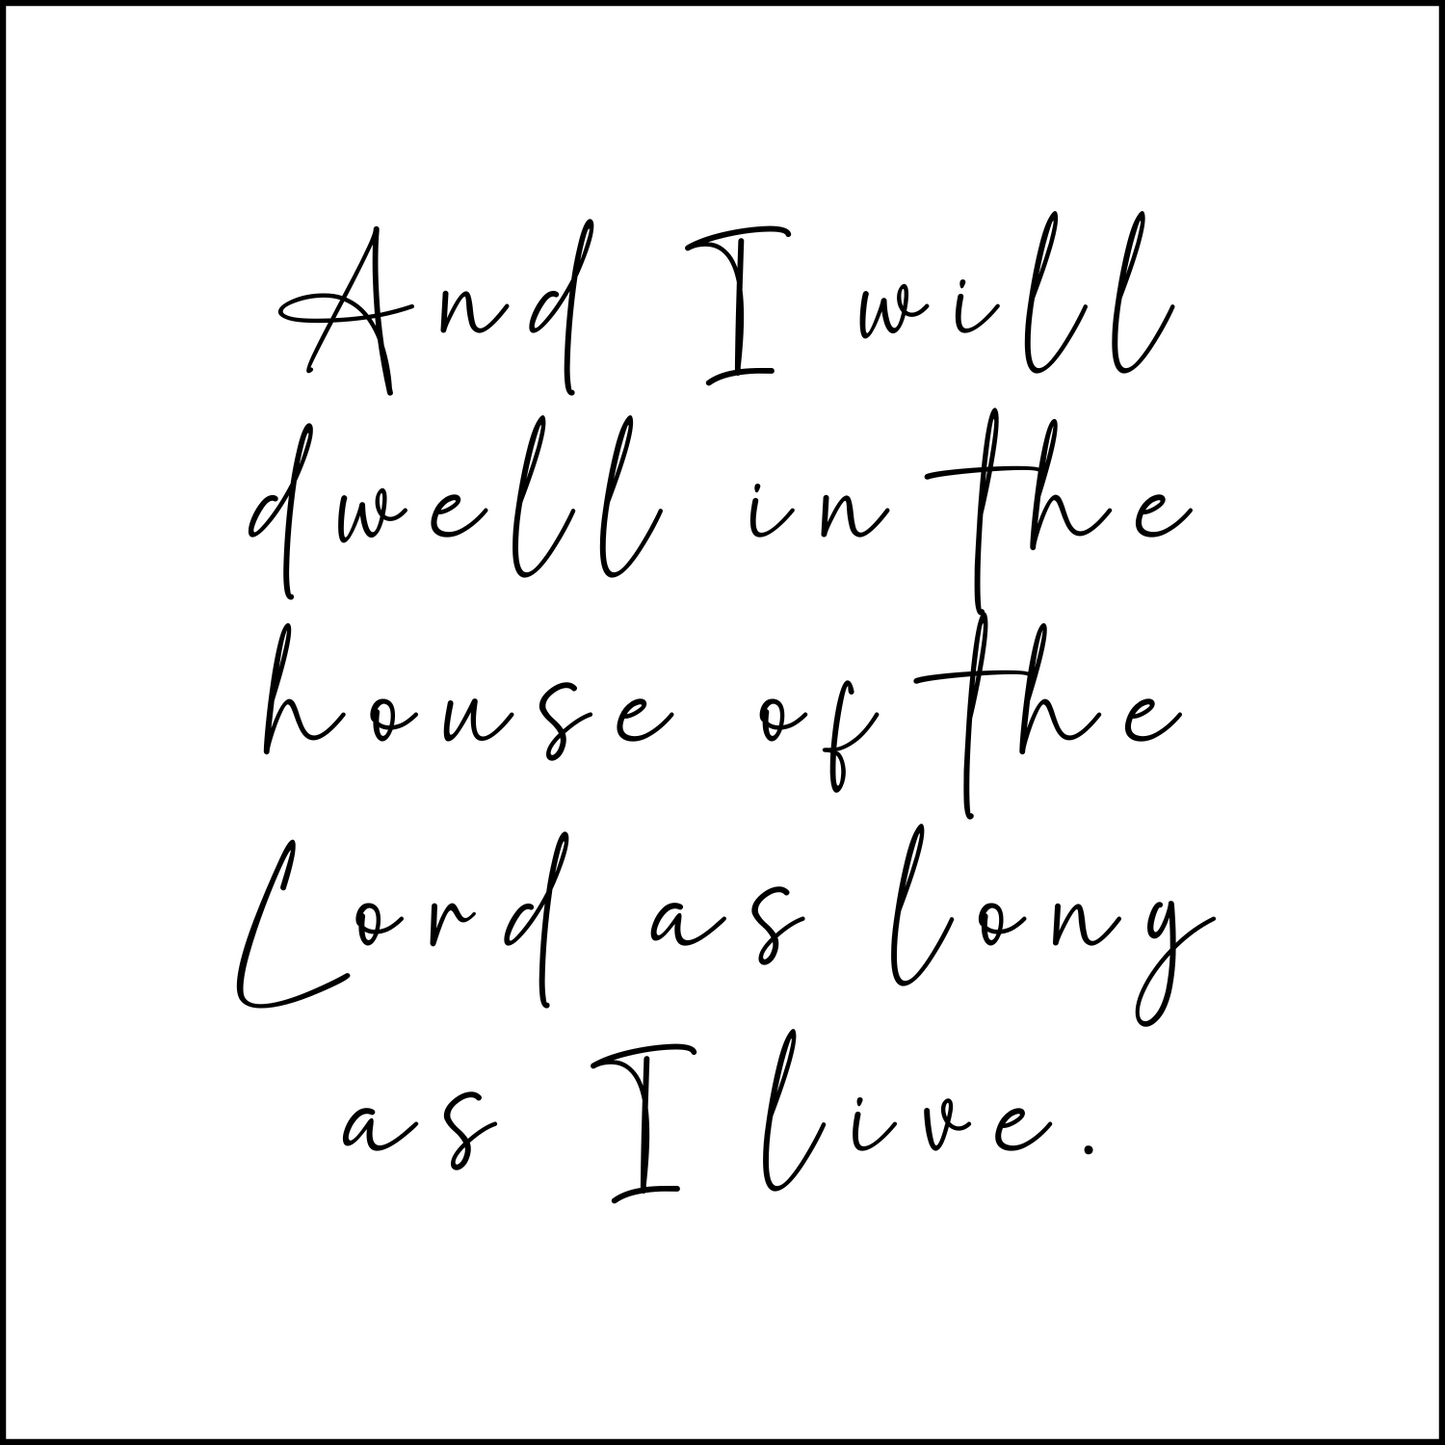 And I will
dwell in the
house of the
Lord as long
as I live.